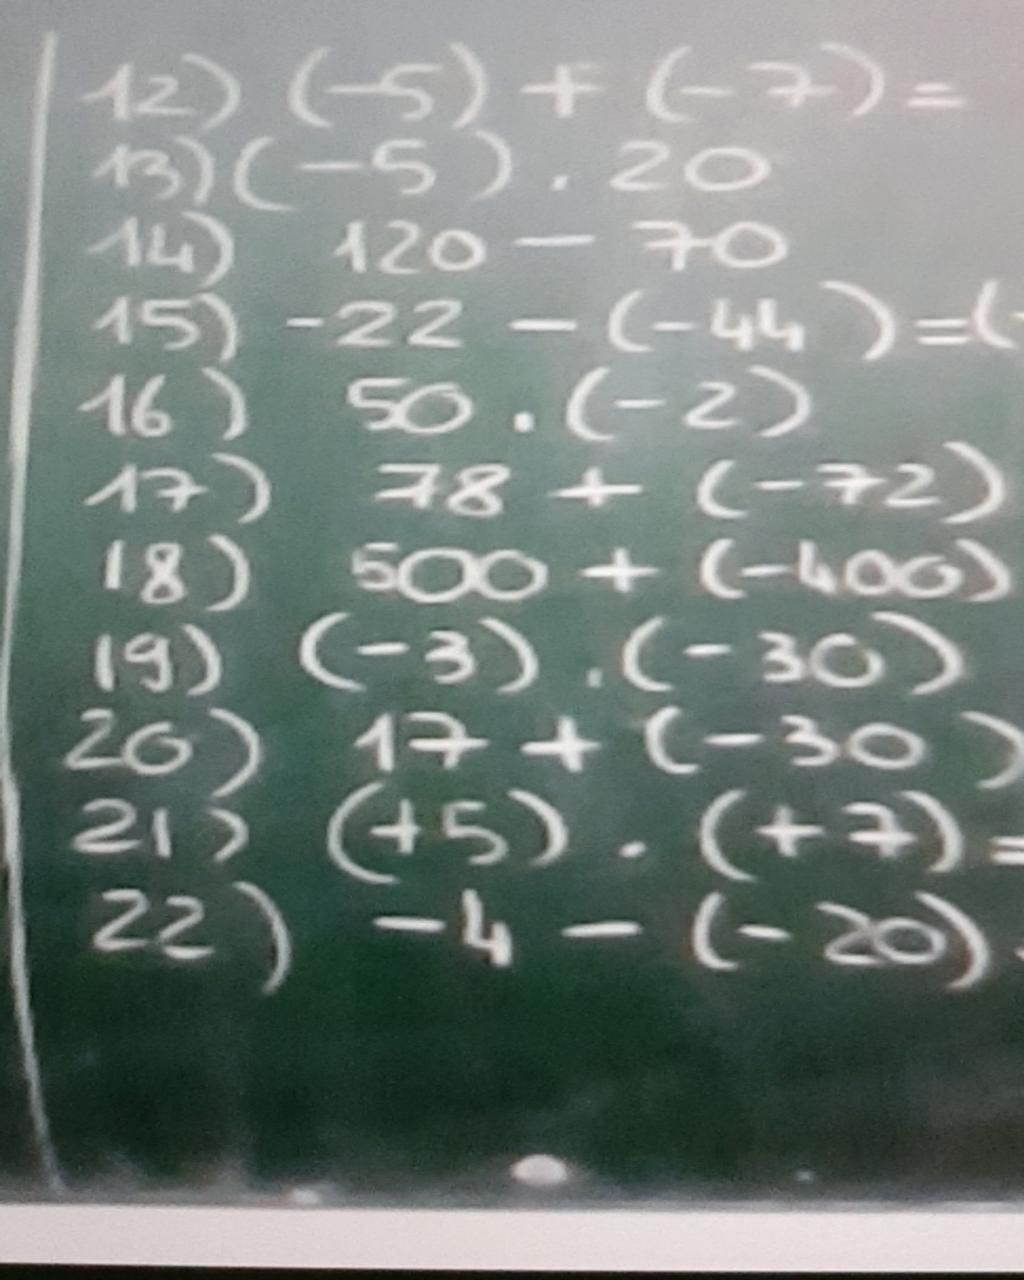 12) (-5) + (-7) =
13) (-5) . 20
14) 120 - 70
15) -22 - (-44) = (-
16) 50 . (-2)
17) 78 + (-72)
18) 500 + (-400)
19) (-3) . (-30)
20) 17 + (-30)
21) (+5) . (+7) =
22) -4 - (-20)